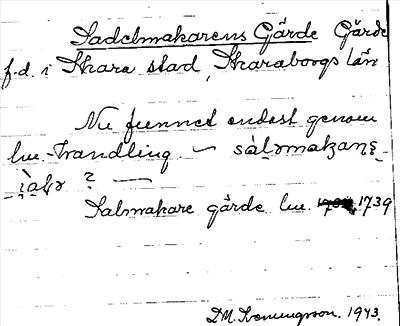 Sadelmakarens Gärde Gärde
f.d. i Skara stad, Skaraborgs län
Nu funnet endast genom
lm-handling — sàlamakaṇṣ-
jạ̀ḷə ? —
Salmakare gärde lm. 1739
D.M. Hemingsson. 1943.